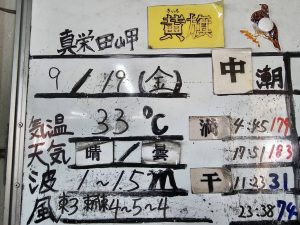 真栄田岬
きいろ
黄旗
9/19(金)
中潮
気温 33℃
天気 晴/曇
波 1~1.5m
風 東3 東南東4~5~4
満 4:45 179
17:51 183
干 11:23 31
23:38 74